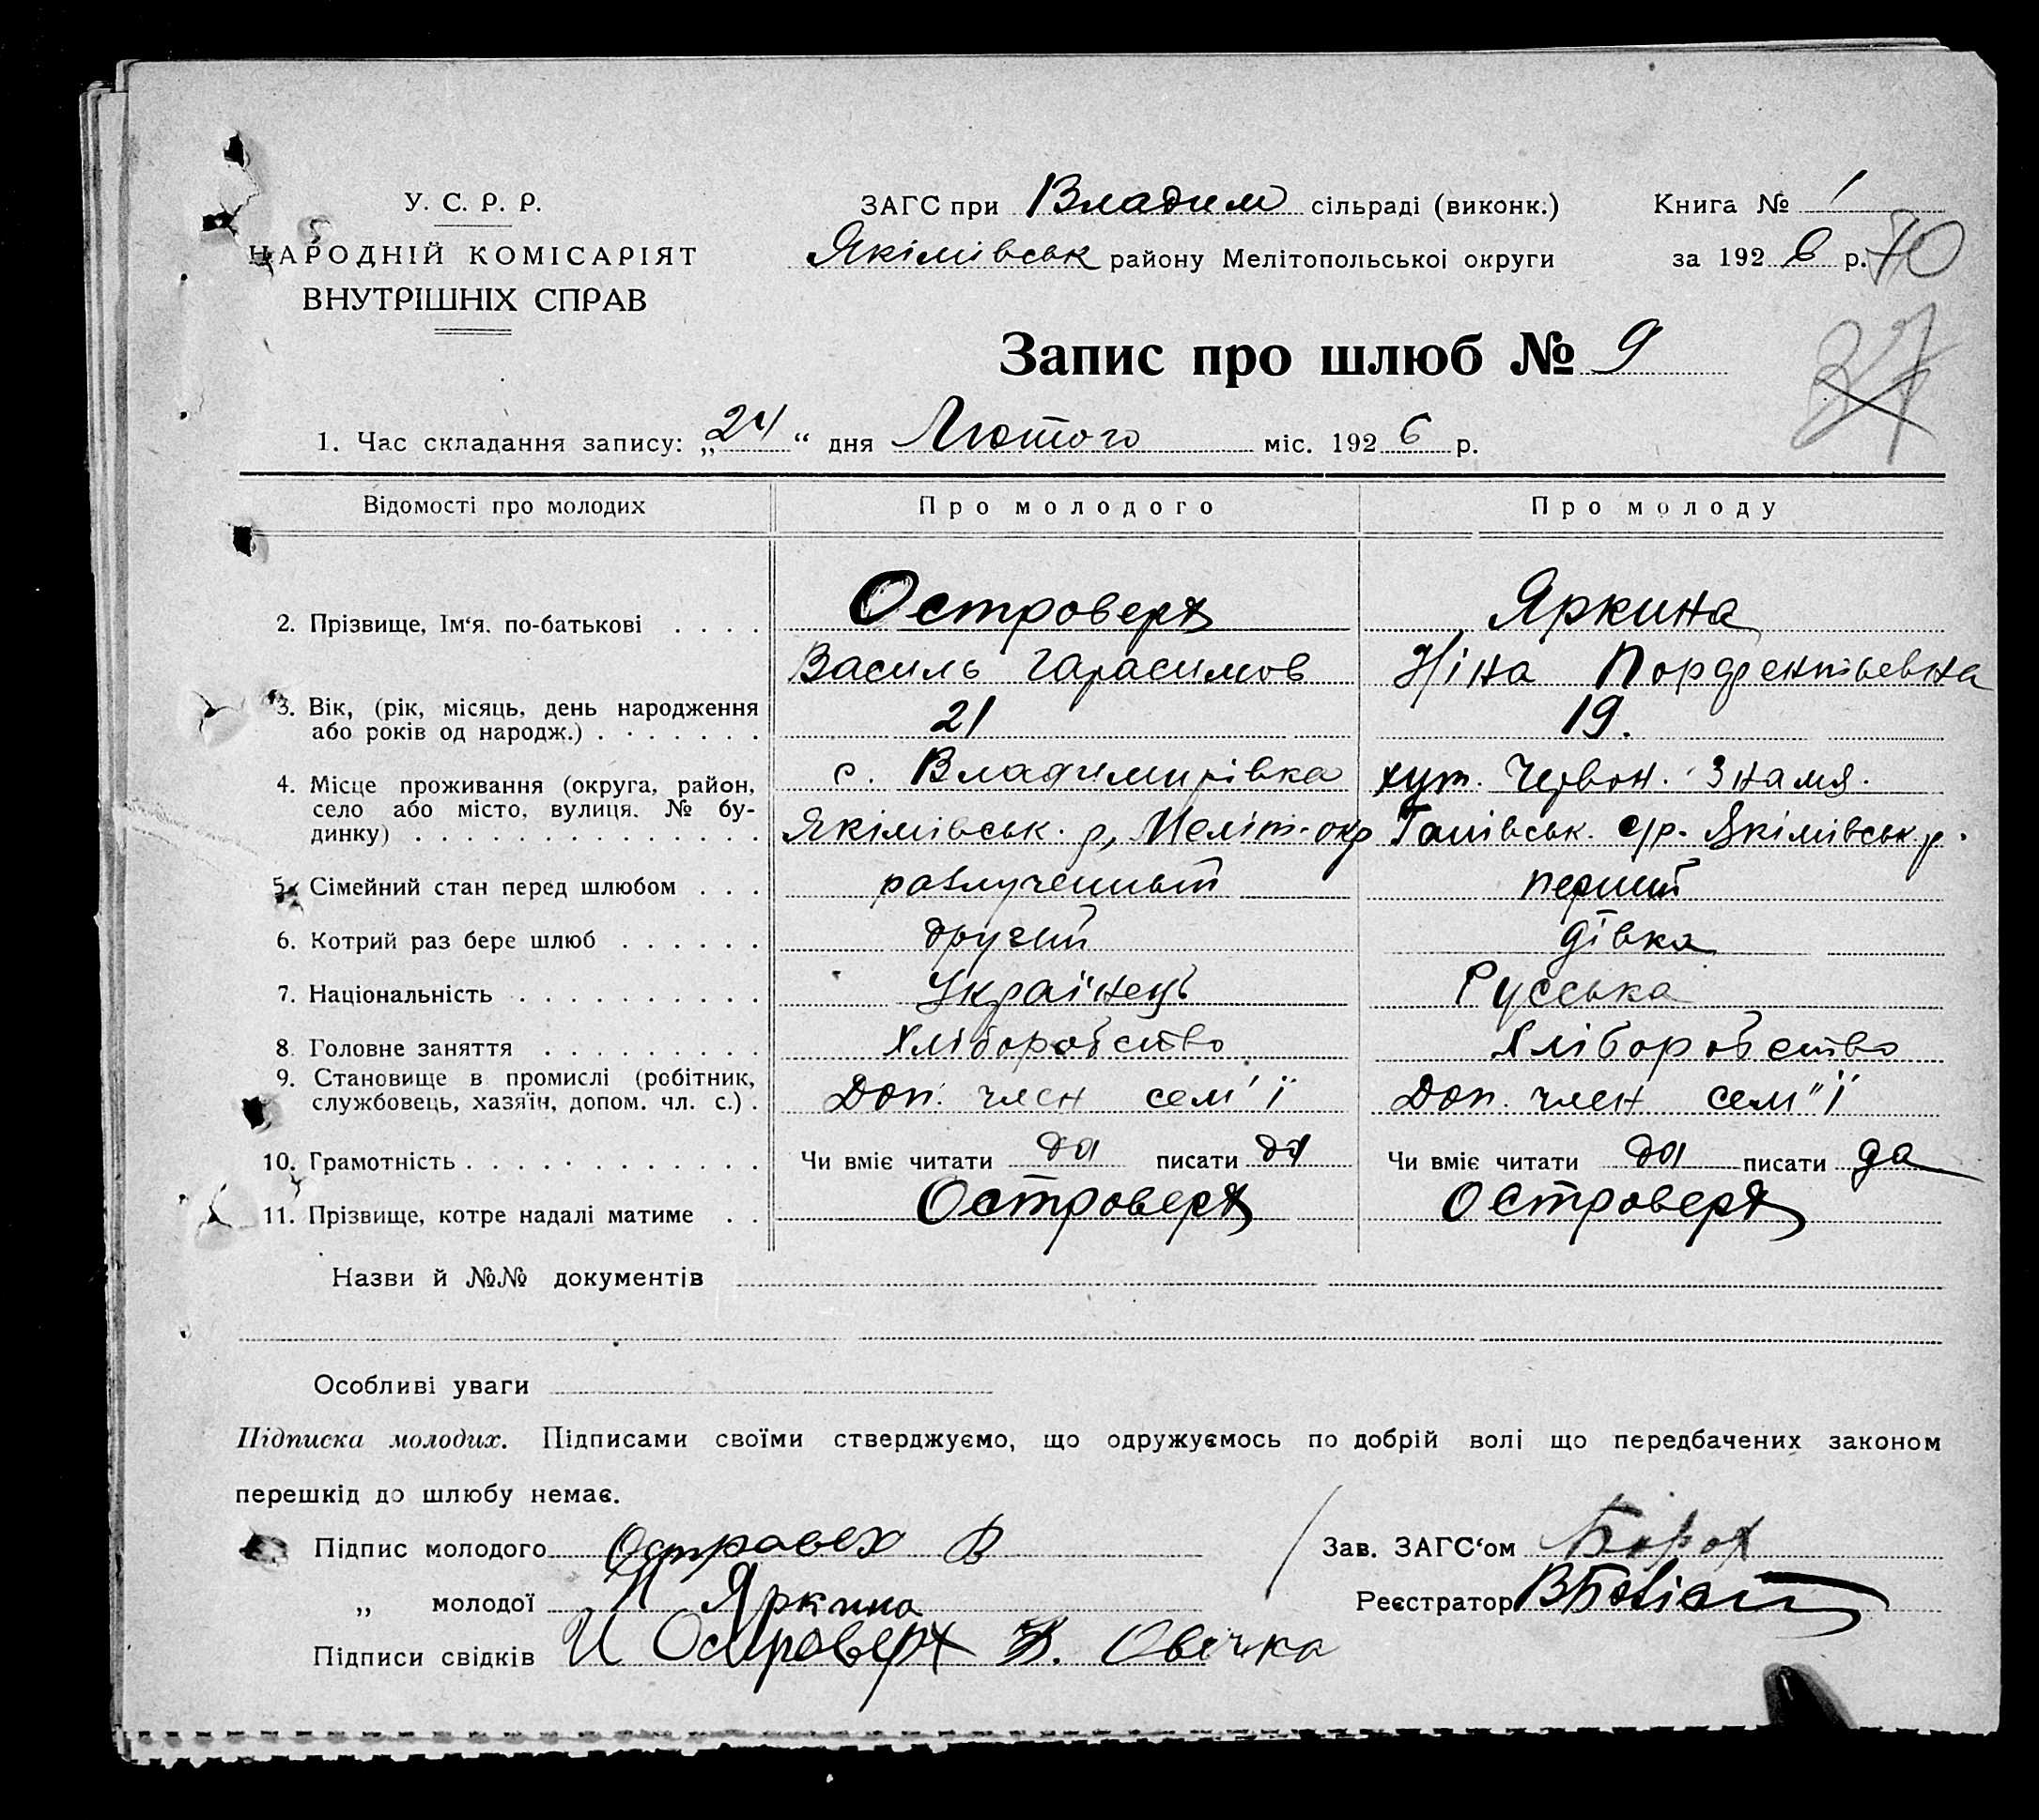 У. С. Р. Р.
НАРОДНІЙ КОМІСАРІЯТ
ВНУТРІШНІХ СПРАВ
ЗАГС при Владим сільраді (виконк.)
Якімівськ району Мелітопольської округи
Книга № 1
за 192 6 р. 40
37
Запис про шлюб № 9
1. Час складання запису: „24“ дня Лютого міс. 192 6 р.
Відомості про молодих Про молодого Про молоду
2. Прізвище, Ім‘я. по-батькові . . . . Островерх Яркина
Василь Гарасимов Ніна Порфентьевна
3. Вік, (рік, місяць, день народження
або років од народж.) . . . . . . . 21 19.
4. Місце проживання (округа, район, с. Владимирівка хут. Червон. Знамя.
село або місто, вулиця. № бу-
динку) . . . . . . . . . . . . . . Якімівськ. р, Меліт. окр Ганівськ. с/р. Якімівськ. р.
5. Сімейний стан перед шлюбом . . . разлученный перший
6. Котрий раз бере шлюб . . . . . . другий дівка
7. Національність . . . . . . . . . . Українець Русська
8. Головне заняття . . . . . . . . . Хліборобство Хліборобство
9. Становище в промислі (робітник,
службовець, хазяїн, допом. чл. с.) . Доп. член сем'ї Доп. член сем"ї
10. Грамотність . . . . . . . . . . . . Чи вміє читати да писати да Чи вміє читати да писати да
11. Прізвище, котре надалі матиме . . Островерх Островерх
Назви й №№ документів
Особливі уваги
Підписка молодих. Підписами своїми стверджуємо, що одружуємось по добрій волі що передбачених законом
перешкід до шлюбу немає.
Підпис молодого Остравех В
Зав. ЗАГС‘ом
„ молодої Н Яркина
Реєстратор
Підписи свідків И Островерх Овечка